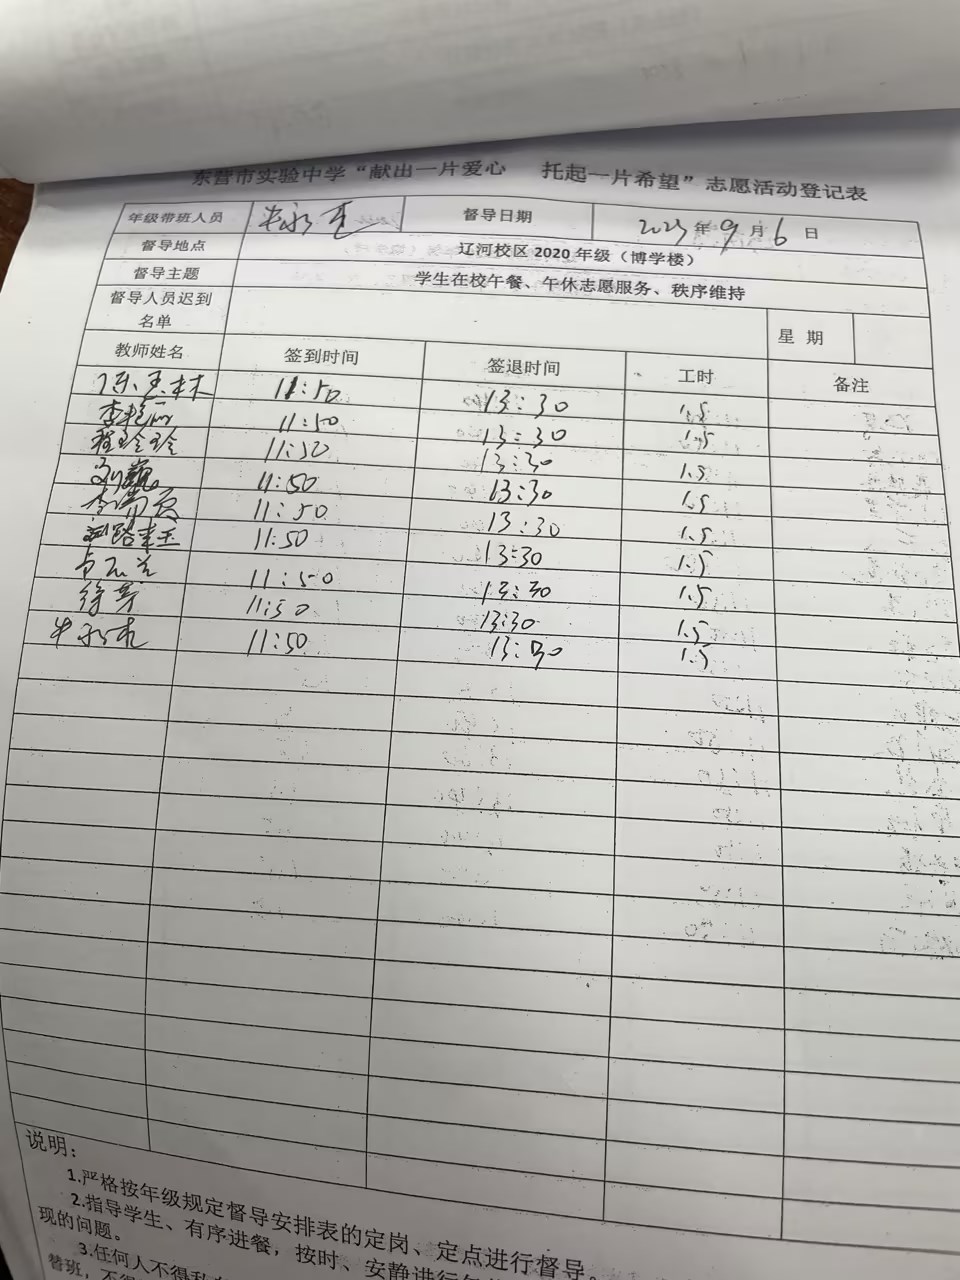 东营市实验中学“献出一片爱心 托起一片希望”志愿活动登记表
年级带班人员 督导日期 2023年9月6日
督导地点 辽河校区2020年级（博学楼）
督导主题 学生在校午餐、午休志愿服务、秩序维持
督导人员迟到名单 星期
教师姓名 签到时间 签退时间 工时 备注
陈玉林 11:50 13:30 1.5
李艳丽 11:50 13:30 1.5
程玲玲 11:50 13:30 1.5
刘巍 11:50 13:30 1.5
11:50 13:30 1.5
11:50 13:30 1.5
11:50 13:30 1.5
徐 11:50 13:30 1.5
牛 11:50 13:30 1.5
说明：
1.严格按年级规定督导安排表的定岗、定点进行督导。
2.指导学生、有序进餐，按时、安静进行午
现的问题。
3.任何人不得私
替班，不得